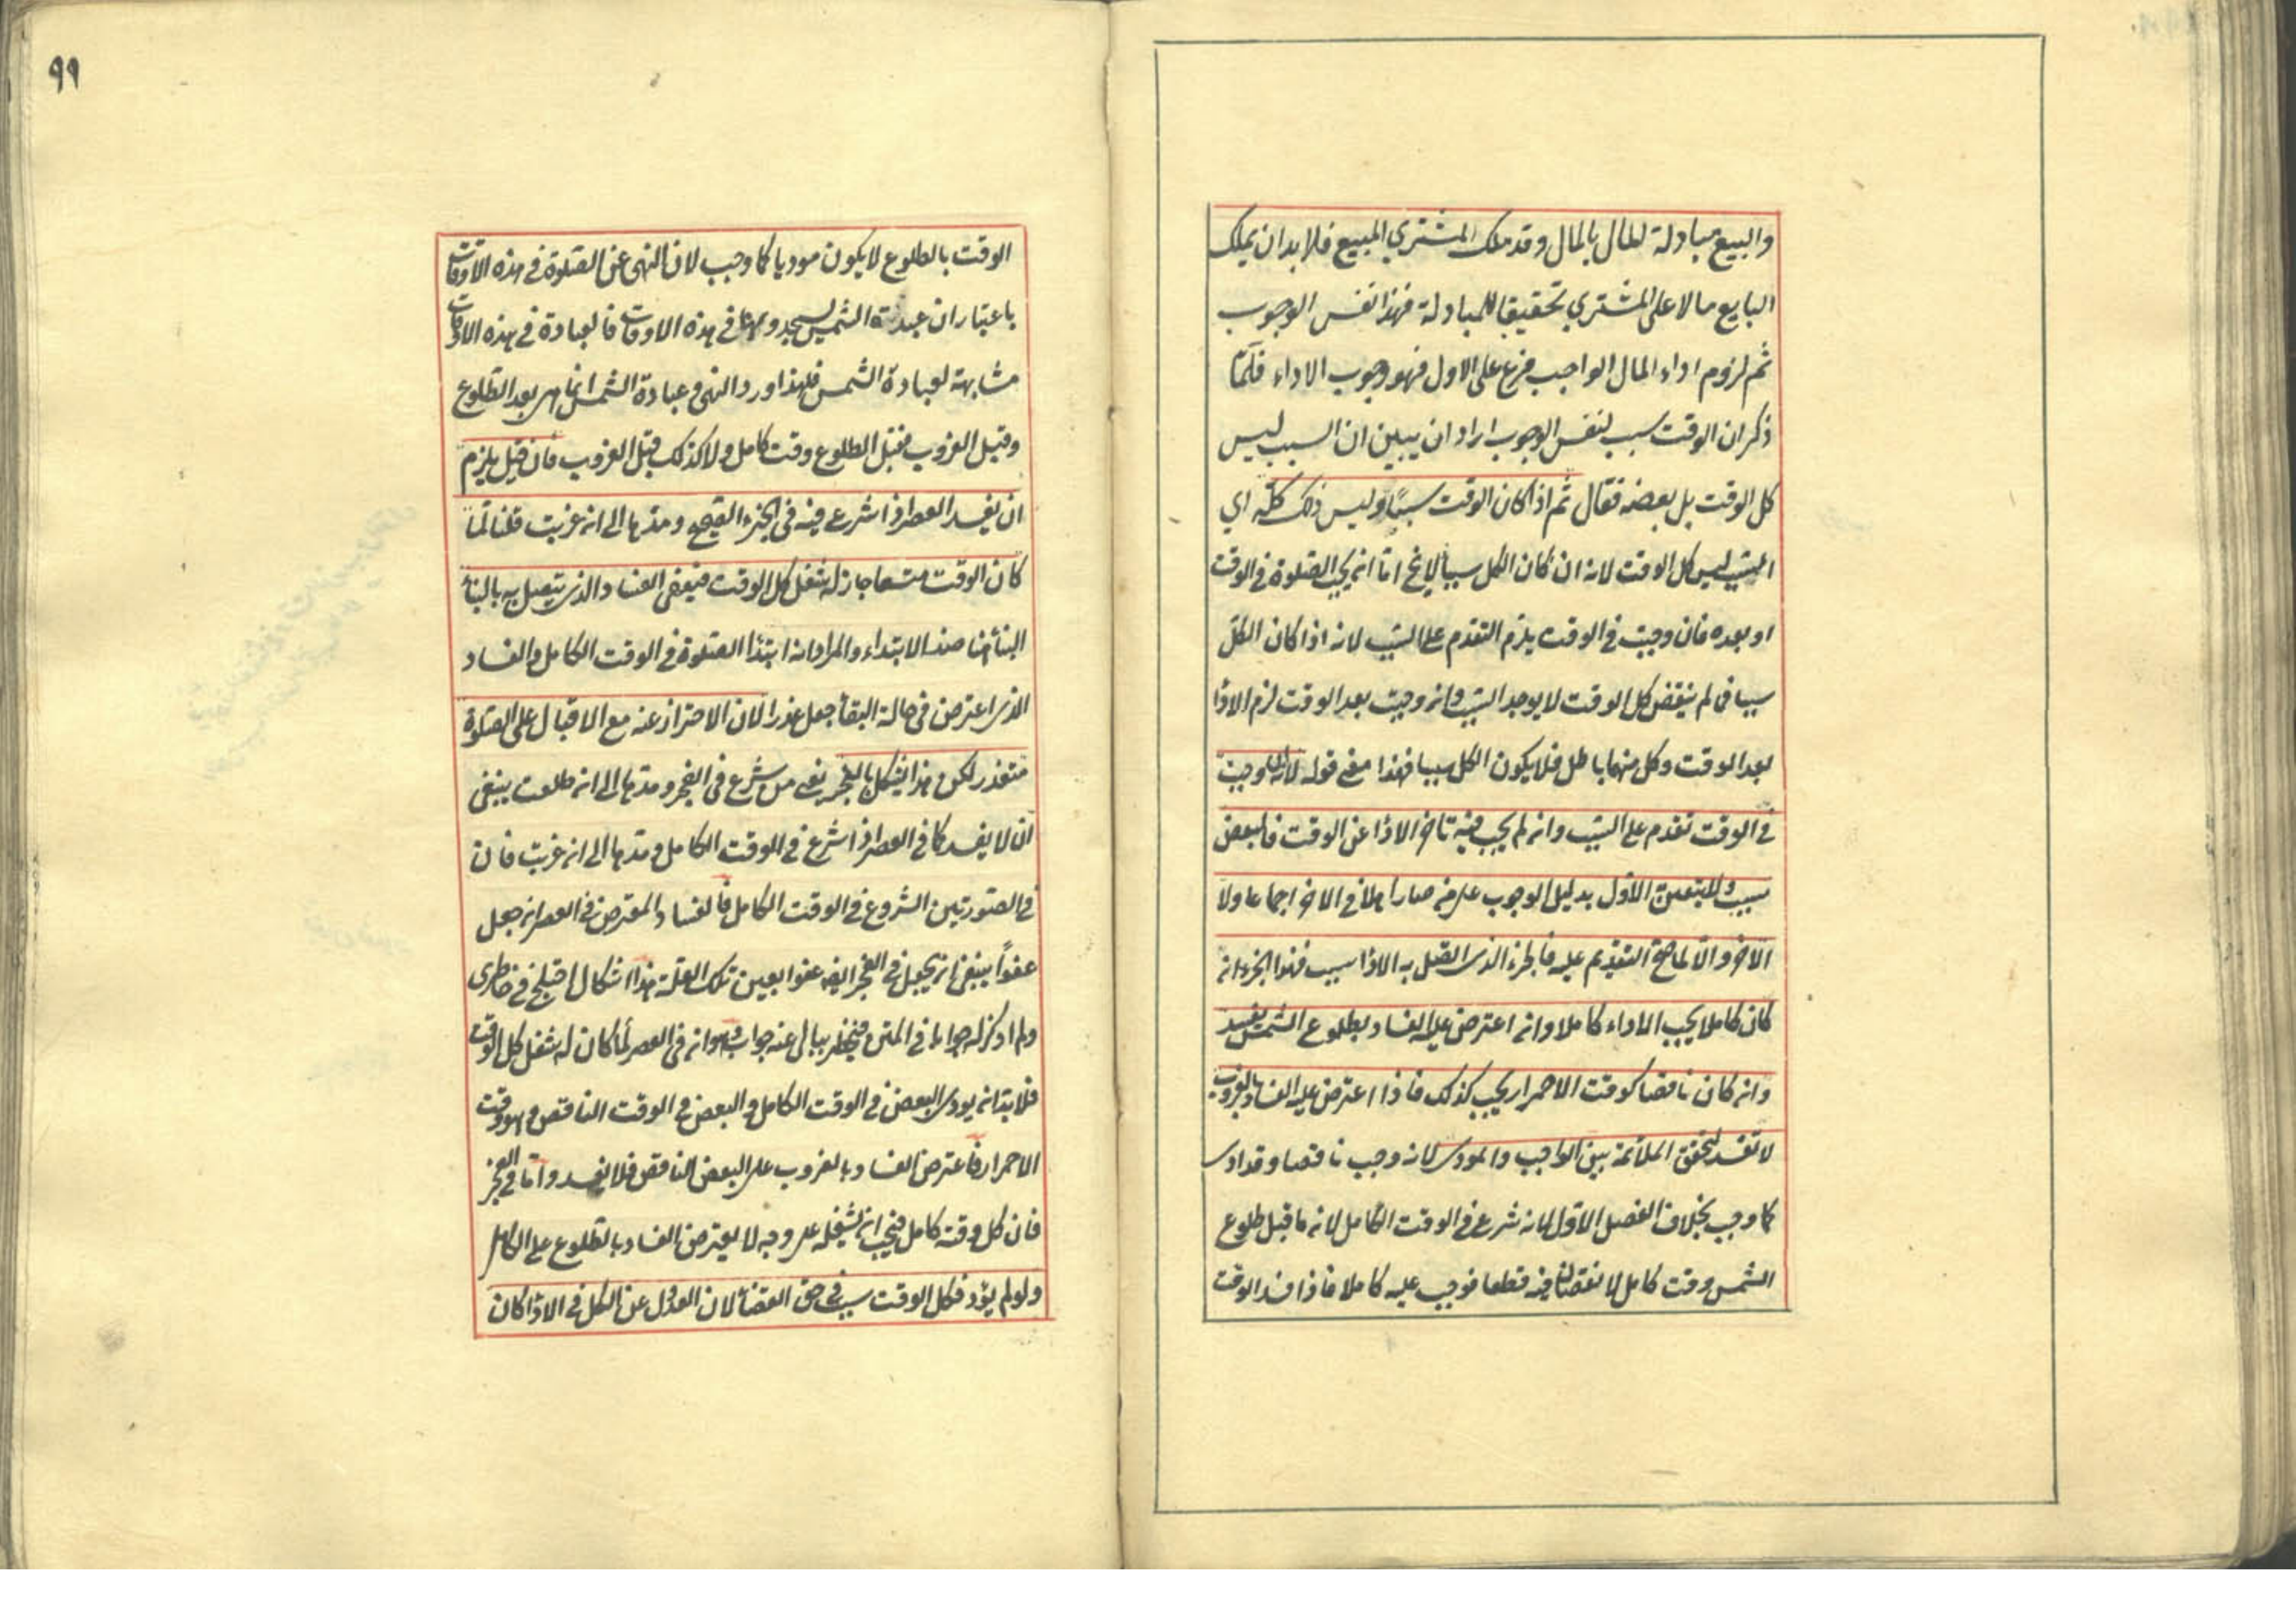 والبيع مبادلة المال بالمال وقد ملك المشتري المبيع فلا بد ان يملك
البايع مالا على المشتري تحقيقا للمبادلة فهذا نفس الوجوب
ثم لزوم اداء المال الواجب فرع على الاول فهو وجوب الاداء فلمّا
ذكر ان الوقت سبب لنفس الوجوب اراد ان يبين ان السبب ليس
كل الوقت بل بعضه فقال ثم اذا كان الوقت سببًا وليس ذلك كلّه اي
السبب ليس كل الوقت لانه ان كان الكل سببا لا يخ امّا ان يجب الصّلوة في الوقت
او بعده فان وجبت في الوقت يلزم التقدم على السّبب لانه اذا كان الكلّ
سببا فما لم ينقض كل الوقت لا يوجد السّبب وان وجبت بعد الوقت لزم الاداء
بعد الوقت وكل منهما باطل فلا يكون الكل سببا فهذا معنى قوله لانه ان وجبت
في الوقت تقدم على السّبب وان لم يجب فيه تاخر الاداء عن الوقت فالبعض
سبب ولا يتعين الاوّل بدليل الوجوب على من صار اهلا في الاخر اجماعا ولا
الاخر والّا لما صحّ التقديم عليه فالجزء الذى اتّصل به الاداء سبب فهذا الجزء ان
كان كاملا يجب الاداء كاملا وان اعترض عليه الفساد بطلوع الشّمس يفسد
وان كان ناقصا كوقت الاحمرار يجب كذلك فاذا اعترض عليه الفساد بالغروب
لا تفسد لتحقق الملائمة بين الواجب والمودى لانه وجب ناقصا وقد ادى
كما وجب بخلاف الفصل الاوّل لانه شرع في الوقت الكامل لانه ما قبل طلوع
الشمس وقت كامل لا نقصان فيه قطعا فوجب عليه كاملا فاذا فسد الوقت
٩٩
الوقت بالطلوع لا يكون موديا كما وجب لان النهى عن الصّلوة في هذه الاوقات
باعتبار ان عبدة الشمس يسجدونها في هذه الاوقات فالعبادة في هذه الاوقات
مشابهة لعبادة الشمس فلهذا ورد النهى وعبادة الشمس انما هى بعد الطلوع
وقبل الغروب فقبل الطلوع وقت كامل ولا كذلك قبل الغروب فان قيل يلزم
ان يفسد العصر اذا شرع فيه في الجزء الصّحيح ومدّها الى ان غربت قلنا لمّا
كان الوقت متسعا جاز له شغل كل الوقت فيعفى الفساد الذى يتصل به بالبناء
البناء هنا ضد الابتداء والمراد انه ابتدأ الصّلوة في الوقت الكامل والفساد
الذى اعترض في حالة البقاء جعل عذرا لان الاحتراز عنه مع الاقبال على الصّلوة
متعذر لكن هذا يشكل بالفجر يعنى من شرع في الفجر ومدّها الى ان طلعت ينبغى
ان لا يفسد كما في العصر اذا شرع في الوقت الكامل ومدّها الى ان غربت فان
في الصّورتين الشروع في الوقت الكامل فالفساد المعترض في العصر ان جعل
عفواً ينبغى ان يجعل في الفجر ايضا عفوا بعين تلك العلّة هذا اشكال اختلج في خاطرى
ولم اذكر له جوابا في المتن فيخطر ببالى عنه جواب وهو انه في العصر لمّا كان له شغل كل الوقت
فلا بدّ ان يودى البعض في الوقت الكامل والبعض في الوقت الناقص وهو وقت
الاحمرار فاعترض الفساد بالغروب على البعض الناقص فلا يفسد وامّا في الفجر
فان كل وقته كامل فيجب ان يشغله على وجه لا يعترض الفساد بالطلوع على الكامل
ولو لم يؤد فكل الوقت سبب في حق القضاء لان العدول عن الكل في الاداء كان